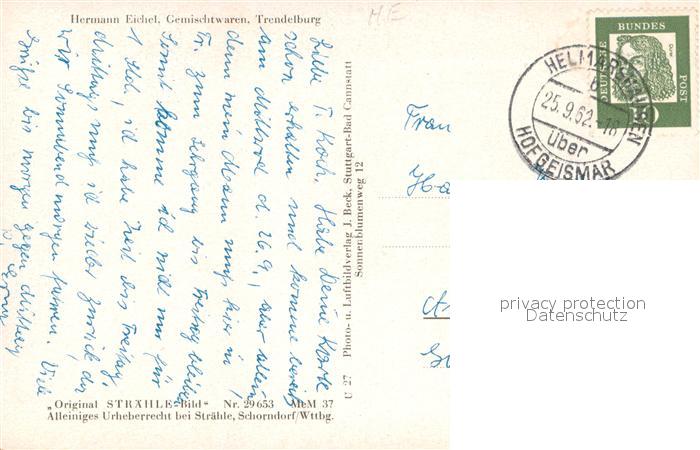 H.E
Hermann Eichel, Gemischtwaren, Trendelburg
DEUTSCHE
BUNDES
POST
Dürer
10
HELMARSHAUSEN
25.9.62.-18
über
HOFGEISMAR
Liebe T. Koch. Habe Deine Karte
schon erhalten und komme bereits
am Mittwoch d. 26.9., aber allein
denn mein Mann muß hier in
Tr. zum Lehrgang bis Freitag bleiben
Somit komme ich nur für
1 Tag, ich habe Zeit bis Freitag,
mittags muß ich wieder zurück, da
wir Sonnabend morgen fahren. Viele
Grüße bis morgen gegen Mittag
Photo- u. Luftbildverlag J. Beck, Stuttgart-Bad Cannstatt
Sonnenblumenweg 12
U 27
Frau
„Original STRÄHLE-Bild" Nr. 29653 MeM 37
Alleiniges Urheberrecht bei Strähle, Schorndorf/Wttbg.
privacy protection
Datenschutz